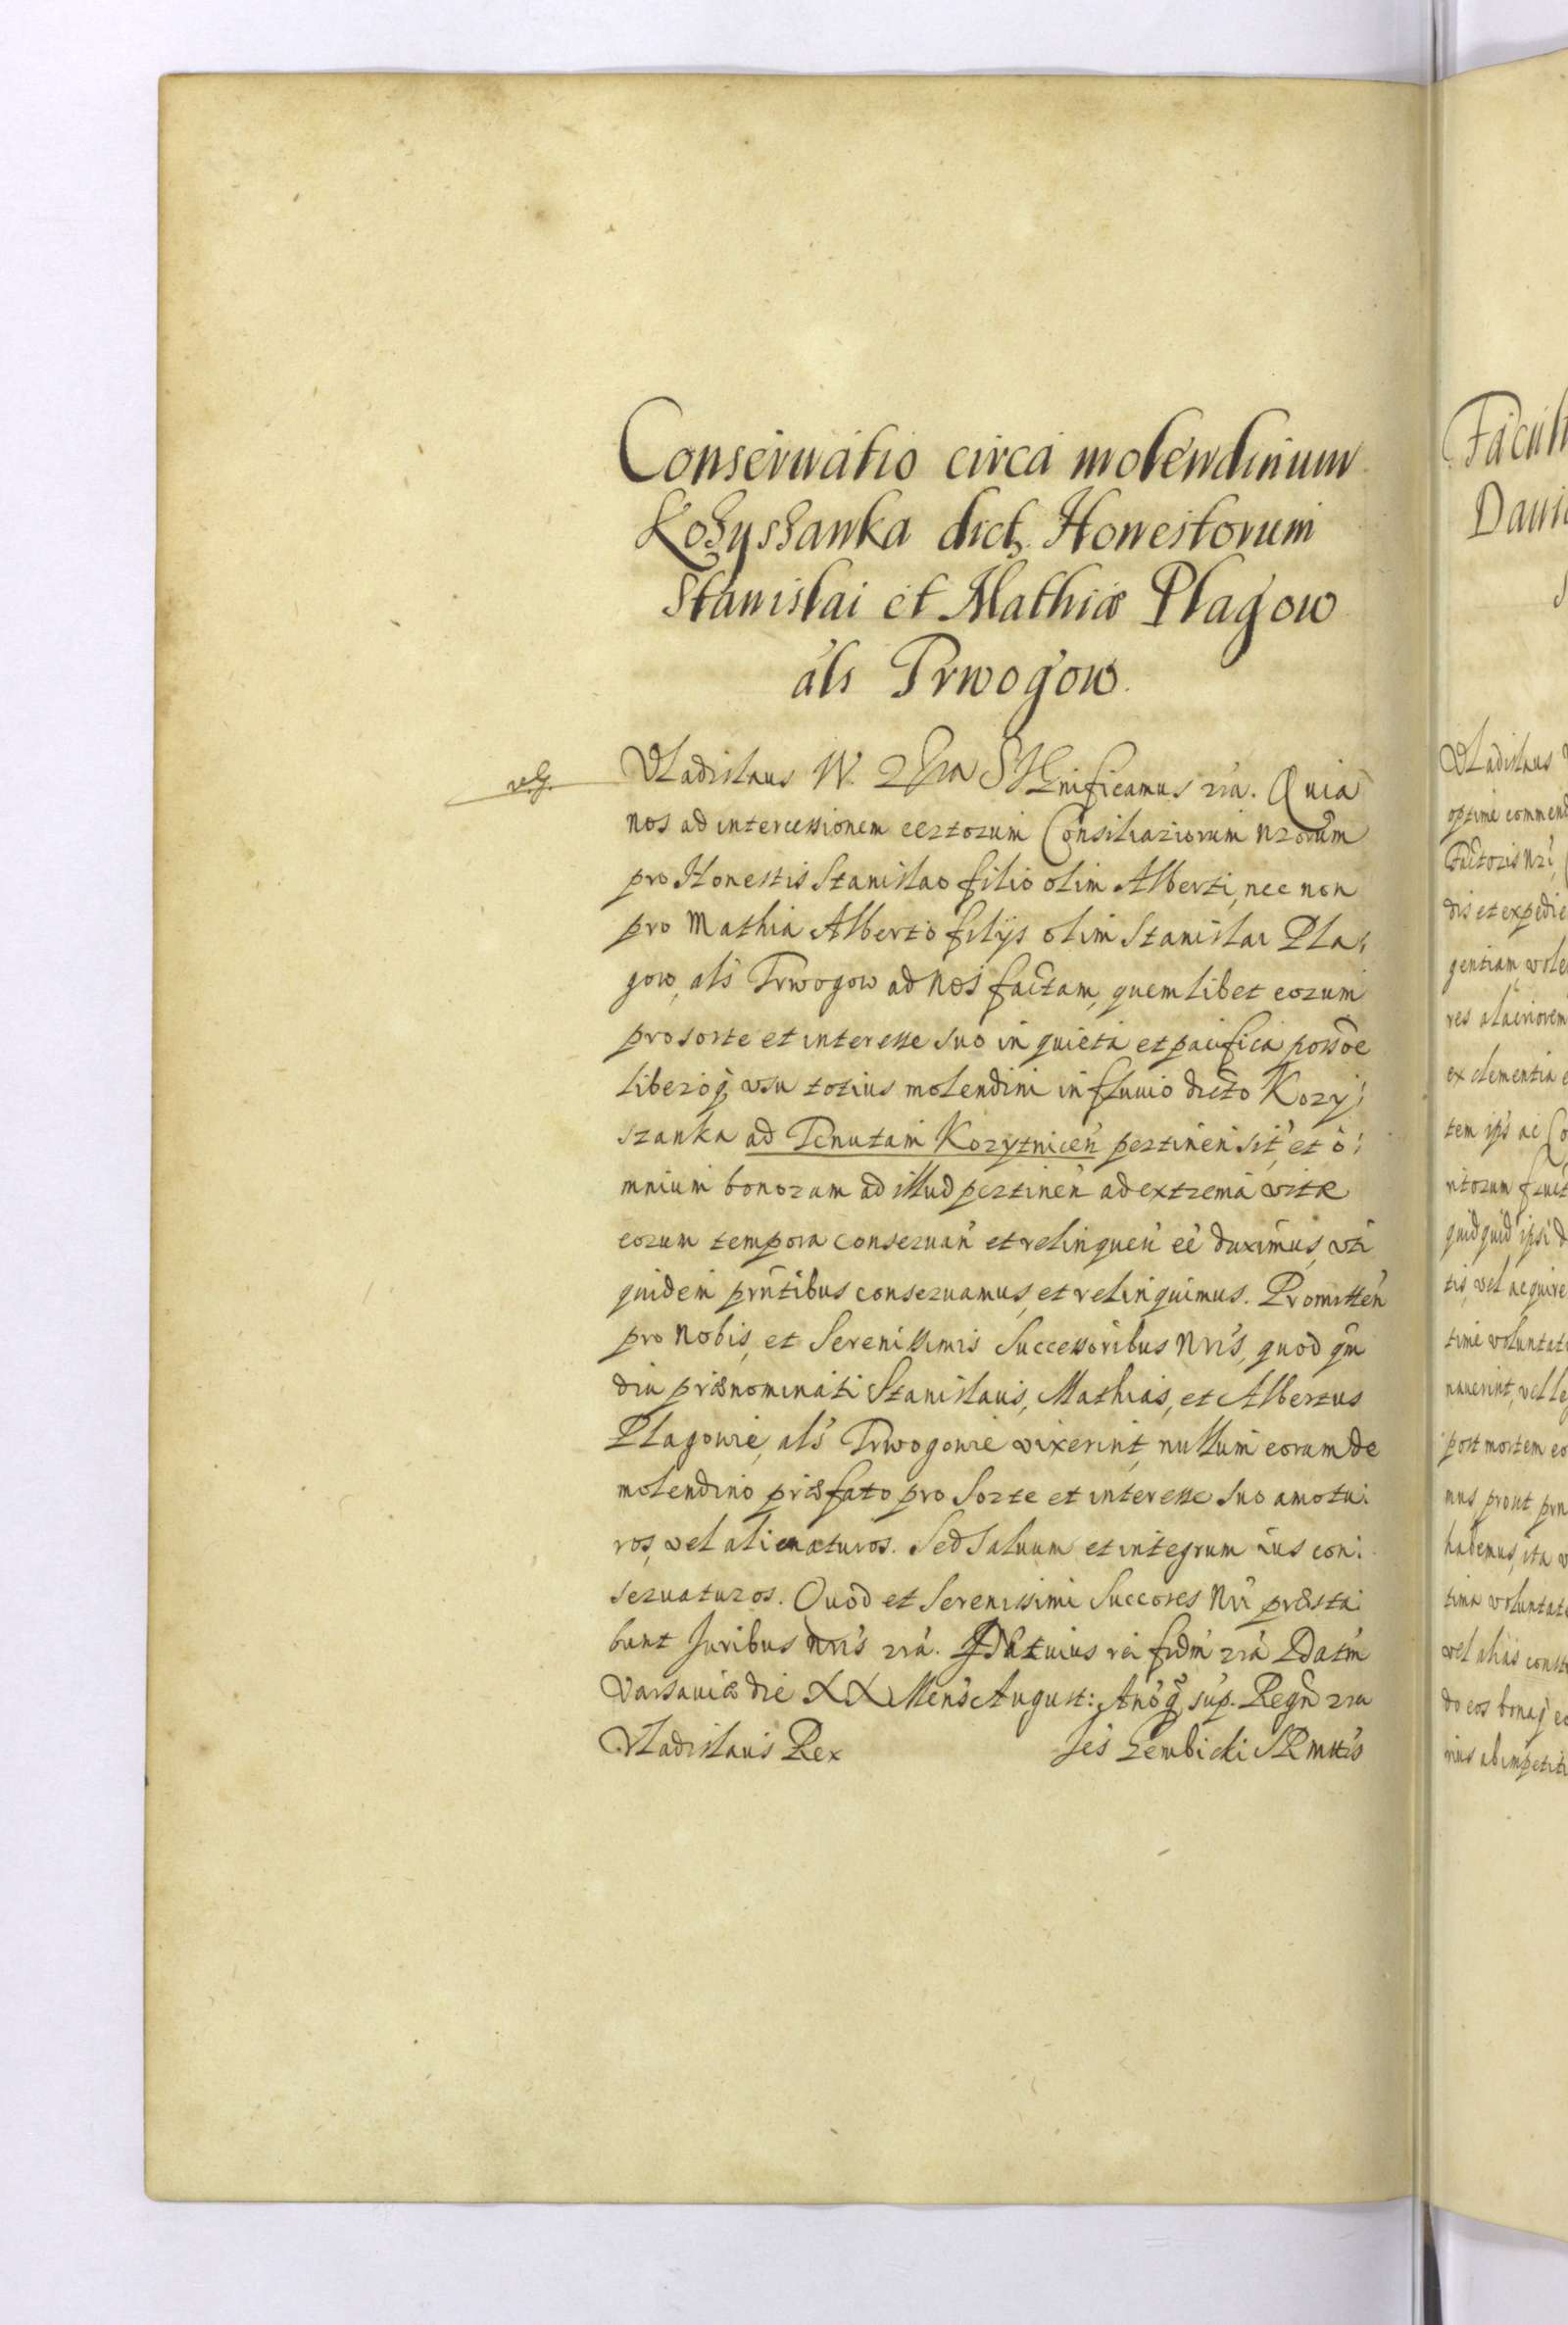 Conservatio circa molendinum
Kozyszanka dict. Honestorum
Stanislai et Mathiæ Plagow
als Trwogow.
Vladislaus IV. Significamus rra. Quia
nos ad intercessionem certorum Consiliariorum nrorum
pro Honestis Stanislao filio olim Alberti, nec non
pro Mathia Alberto filijs olim Stanislai Pla:
gow, als Trwogow ad nos factam, quemlibet eorum
pro sorte et interesse suo in quieta et pacifica possõe
liberoq, vsu totius molendini in fluuio dicto Kozy:
szanka ad Tenutam Kozytnicen pertinen sit, et o:
mnium bonorum ad illud pertinen ad extrema vitæ
eorum tempora conseruan et relinquen eē duximus, vti
quidem prñtibus conseruamus, et relinquimus. Promitten
pro nobis, et Serenissimis Successoribus nris, quod qm
diu prænominati Stanislaus, Mathias, et Albertus
Plagowie, als Trwogowie vixerint, nullum eorum de
molendino præfato pro Sorte et interesse suo amotu:
ros, vel alienaturos. Sed saluum et integrum ius con:
seruaturos. Quod et Serenissimi Succores nri præsta:
bunt Juribus nris rra. In cuius rei fidm rra Datm
Varsauiæ die XX Mens August: Anoq, sup. Regn rra
Vladislaus Rex
Jes Gembicki SRMttis
Facult
Daui
Vladislaus
optime commend
Factoris nri,
dis et expedie
gentiam, vole
res alacriorem
ex clementia
tem ips ac Co
ritorum fruct
quidquid ipsi d
tis, vel acquire
time voluntat
nauerint, vel le
post mortem eo
mus prout prn
habemus, ita v
tima voluntat
vel alias const
do eos bonaq eo
rius ab impetiti